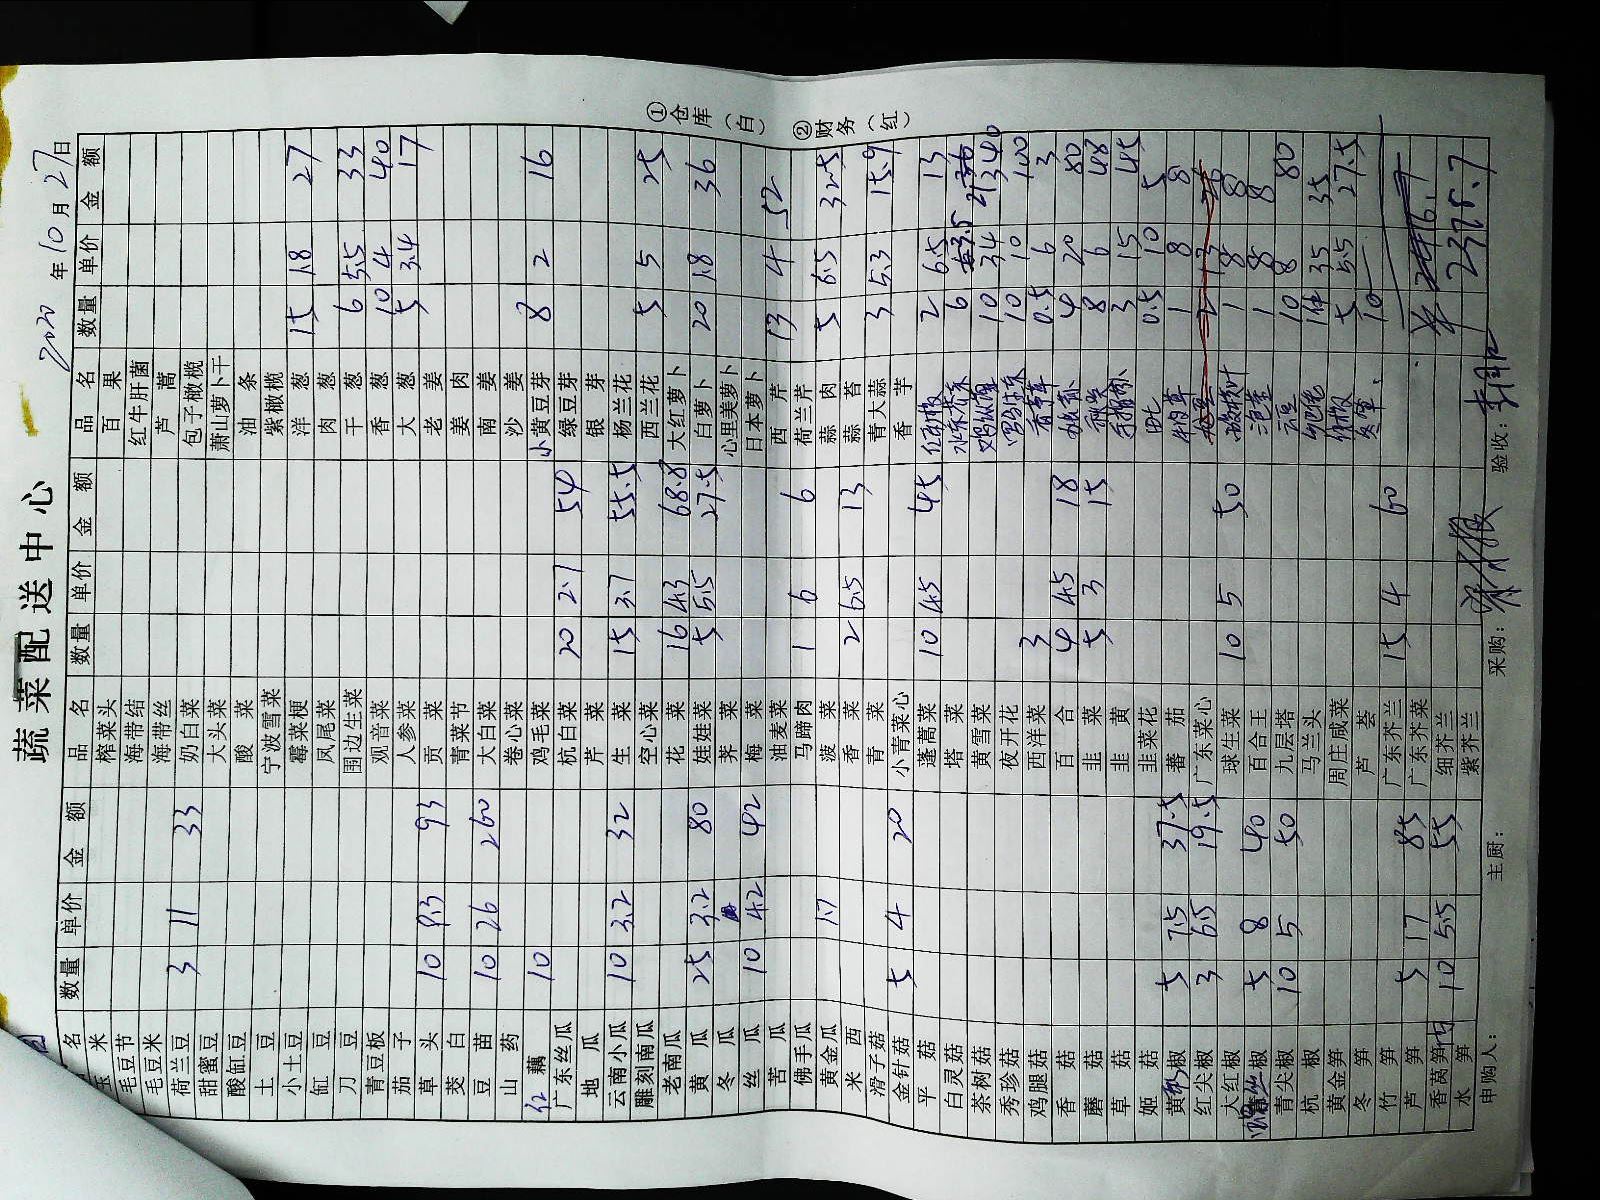 蔬菜配送中心
2020 年 10 月 27 日
品名 数量 单价 金额 品名 数量 单价 金额 品名 数量 单价 金额
玉米 榨菜头 百果
毛豆节 海带结 红牛肝菌
毛豆米 海带丝 芦蒿
荷兰豆 3 11 33 奶白菜 包子橄榄
甜蜜豆 大头菜 萧山萝卜干
酸豇豆 酸菜 油条
土豆 宁波雪菜 紫橄榄
小土豆 霉菜梗 洋葱 15 1.8 27
豇豆 凤尾菜 肉葱
刀豆 围边生菜 干葱 6 5.5 33
青豆板 观音菜 香葱 10 4 40
茄子 人参菜 大葱 5 3.4 17
草头 10 9.3 93 贡菜 老姜
茭白 青菜节 姜肉
豆苗 10 26 260 大白菜 南姜
山药 卷心菜 沙姜
红藕 10 鸡毛菜 小黄豆芽 8 2 16
广东丝瓜 杭白菜 20 2.7 54 绿豆芽
地瓜 芹菜 银芽
云南小瓜 10 3.2 32 生菜 15 3.7 55.5 杨兰花
雕刻南瓜 空心菜 西兰花 5 5 25
老南瓜 花菜 16 4.3 68.8 大红萝卜
黄瓜 25 3.2 80 娃娃菜 5 5.5 27.5 白萝卜 20 1.8 36
冬瓜 荠菜 心里美萝卜
丝瓜 10 4.2 42 梅菜 日本萝卜
苦瓜 油麦菜 西芹 13 4 52
佛手瓜 马蹄肉 1 6 6 荷兰芹
黄金瓜 1.7 菠菜 蒜肉 5 6.5 32.5
米西 香菜 2 6.5 13 蒜苔
滑子菇 青菜 青大蒜 3 5.3 15.9
金针菇 5 4 20 小青菜心 香芋
平菇 蓬蒿菜 10 4.5 45 2 6.5 13
白灵菇 塔菜 6 3.5 21
茶树菇 黄雪菜 10 34 340
秀珍菇 夜开花 10 10 100
鸡腿菇 西洋菜 3 香茅草 0.5 6 3
香菇 百合 4 4.5 18 4 20 80
蘑菇 韭菜 5 3 15 秋葵 8 6 48
草菇 韭黄 3 15 45
姬菇 韭菜花 0.5 10 5
黄彩椒 5 7.5 37.5 蕃茄 1 8 8
红尖椒 3 6.5 19.5 广东菜心 2 13 26
大红椒 球生菜 10 5 50 1 8 8
椒 5 8 40 百合王 1 8 8
青尖椒 10 5 50 九层塔 10 8 80
杭椒 马兰头 35
黄金笋 周庄咸菜 5 5.5 27.5
冬笋 芦荟 10
竹笋 广东芥兰 15 4 60
芦笋 5 17 85 广东芥菜
香莴笋 10 5.5 55 细芥兰
水笋 紫芥兰 2378.7
申购人： 主厨： 采购： 验收：
①仓库（白） ②财务（红）